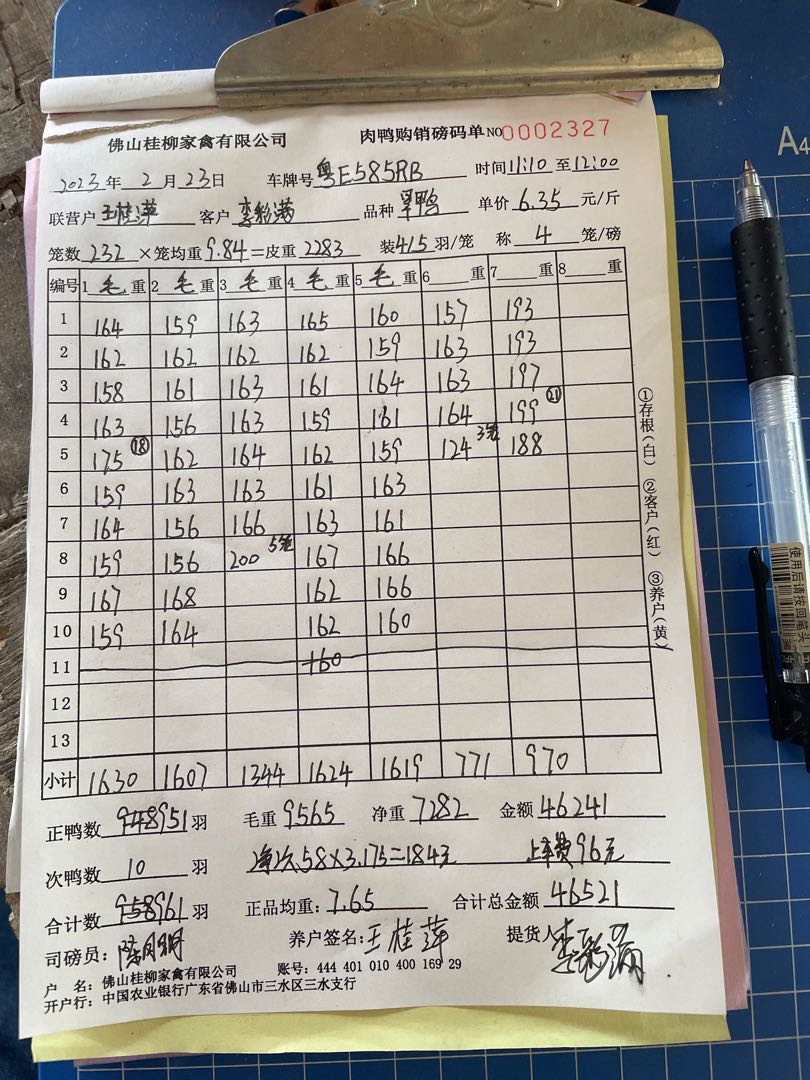 佛山桂柳家禽有限公司 肉鸭购销磅码单 NO 0002327
2023年 2月 23日 车牌号 粤E585RB 时间 11:10 至 12:00
联营户 王桂萍 客户 李彩满 品种 单价 6.35 元/斤
笼数 232 ×笼均重 9.84 =皮重 2283 装 4/5 羽/笼 称 4 笼/磅
编号 1 毛 重 2 毛 重 3 毛 重 4 毛 重 5 毛 重 6 重 7 重 8 重
1 164 159 163 165 160 157 193
2 162 162 162 162 159 163 193
3 158 161 163 161 164 163 197
4 163 156 163 159 161 164 199 ㉑
5 175 ⑱ 162 164 162 159 124 3笼 188
6 159 163 163 161 163
7 164 156 166 163 161
8 159 156 200 5笼 167 166
9 167 168 162 166
10 159 164 162 160
11 160
12
13
小计 1630 1607 1344 1624 1619 771 970
正鸭数 948 951 羽 毛重 9565 净重 7282 金额 46241
次鸭数 10 羽 净次58×3.175=184元 上车费96元
合计数 958 961 羽 正品均重: 7.65 合计总金额 46521
司磅员: 养户签名: 王桂萍 提货人 李彩满
户 名: 佛山桂柳家禽有限公司 账号: 444 401 010 400 169 29
开户行: 中国农业银行广东省佛山市三水区三水支行
①存根(白) ②客户(红) ③养户(黄)
A4
使用后请按回笔头